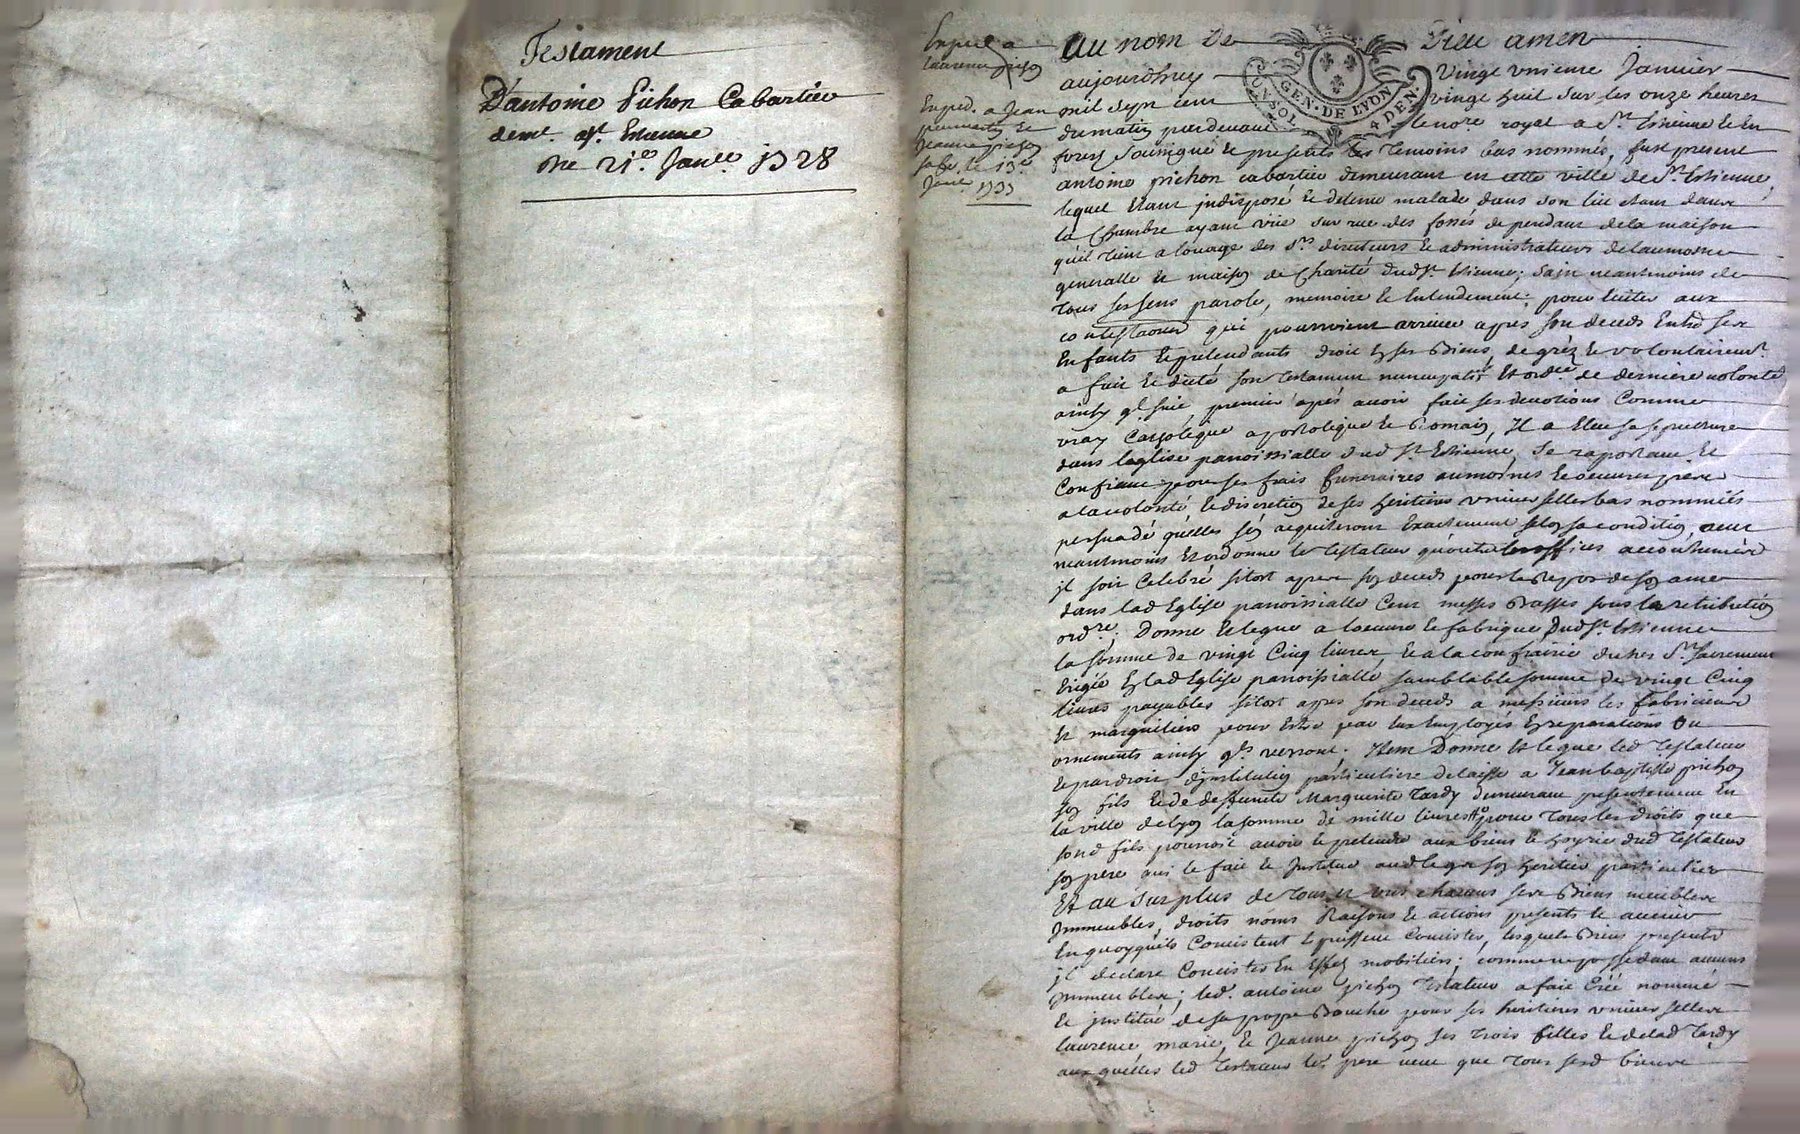 Testament
D'antoine Pichon Cabartier
demt. a St. Estienne
Du 21e. Janer. 1728
Exped. a
Laurence pichon
Exped. a Jean
et
Jeanne pichon
le 13e.
Au nom de Dieu amen
aujourdhuy vingt unieme Janvier
mil sept cent vingt huit sur les onze heures
du matin pardevant le nore. royal a St. Estienne en
forest soussigné et presents les temoins bas nommés, fust present
antoine pichon cabartier demeurant en cette ville de St. Estienne,
lequel étant indisposé et detenu malade dans son lit étant dans
la Chambre ayant vüe sur rue des fossés dependant de la maison
qu'il tient a louage des Srs. directeurs et administrateurs de laumone
generalle et maison de Charité dudt. St. Estienne; sain neantmoins de
tous ses sens parole, memoire et Entendement; pour eviter aux
contestaons qui pourroient arriver apres son deceds Entre ses
Enfants et pretendants droit en ses Biens, de gréz et volontairemt.
a fait et dicté son testament nuncupatif et ordce. de derniere volonté
ainsy ql. suit, premier apres avoir fait ses devotions Comme
vray Catholique apostolique et Romain, Il a Eleu sa sepulture
dans leglise parroissialle dudt. St. Estienne, se raportant et
Confiant pour ses frais funeraires aumones et oeuvres pies
a la volonté et discretion de ses heritieres universelles bas nommées
persuadé qu'elles s'en acquiteront Exactement selon sa condition, veut
neantmoins et ordonne le testateur qu'outre les offices accoutumées
il soit Celebré sitost apres son deceds pour le Repos de son ame
dans lad Eglise parroissialle Cent messes Basses sous la retribution
ordre.; Donne et legue a loeuvre et fabrique dudt. St. Estienne
la somme de vingt Cinq livres et a la confrairie du tres St. Sacrement
Erigée En lad Eglise parroissialle semblable somme de vingt Cinq
livres payables sitost apres son deceds a messieurs les fabriciens
et marguilliers pour Estre par eux Employés En reparations ou
ornements ainsy qls. verront. Item Donne et legue led testateur
et par droit d'institution particuliere delaisse a Jean baptiste pichon
son fils et de deffunte Marguerite Tardy demeurant presentement En
la ville de lyon la somme de mille livres pour tous les droits que
sond fils pourroit avoir et pretendre aux biens et hoyrie dud testateur
son pere qui le fait et Institue aud legs son heritier particulier
Et au surplus de tous et uns chacuns ses Biens meubles
Immeubles, droits noms Raisons et actions presents et avenir
En quoyquils Consistent et puissent Consister, lesquels Biens presents
il declare Consister En Effets mobiliers; comme ne possedant aucuns
immeubles; led. antoine pichon testateur a fait Créé nommé
et institué de sa propre Bouche pour ses heritieres universelles
laurence marie, et Jeanne pichon ses trois filles et de lad Tardy
auxquelles led testateur leur pere veut que tous sesd biens
GEN. DE LYON
4 DEN.